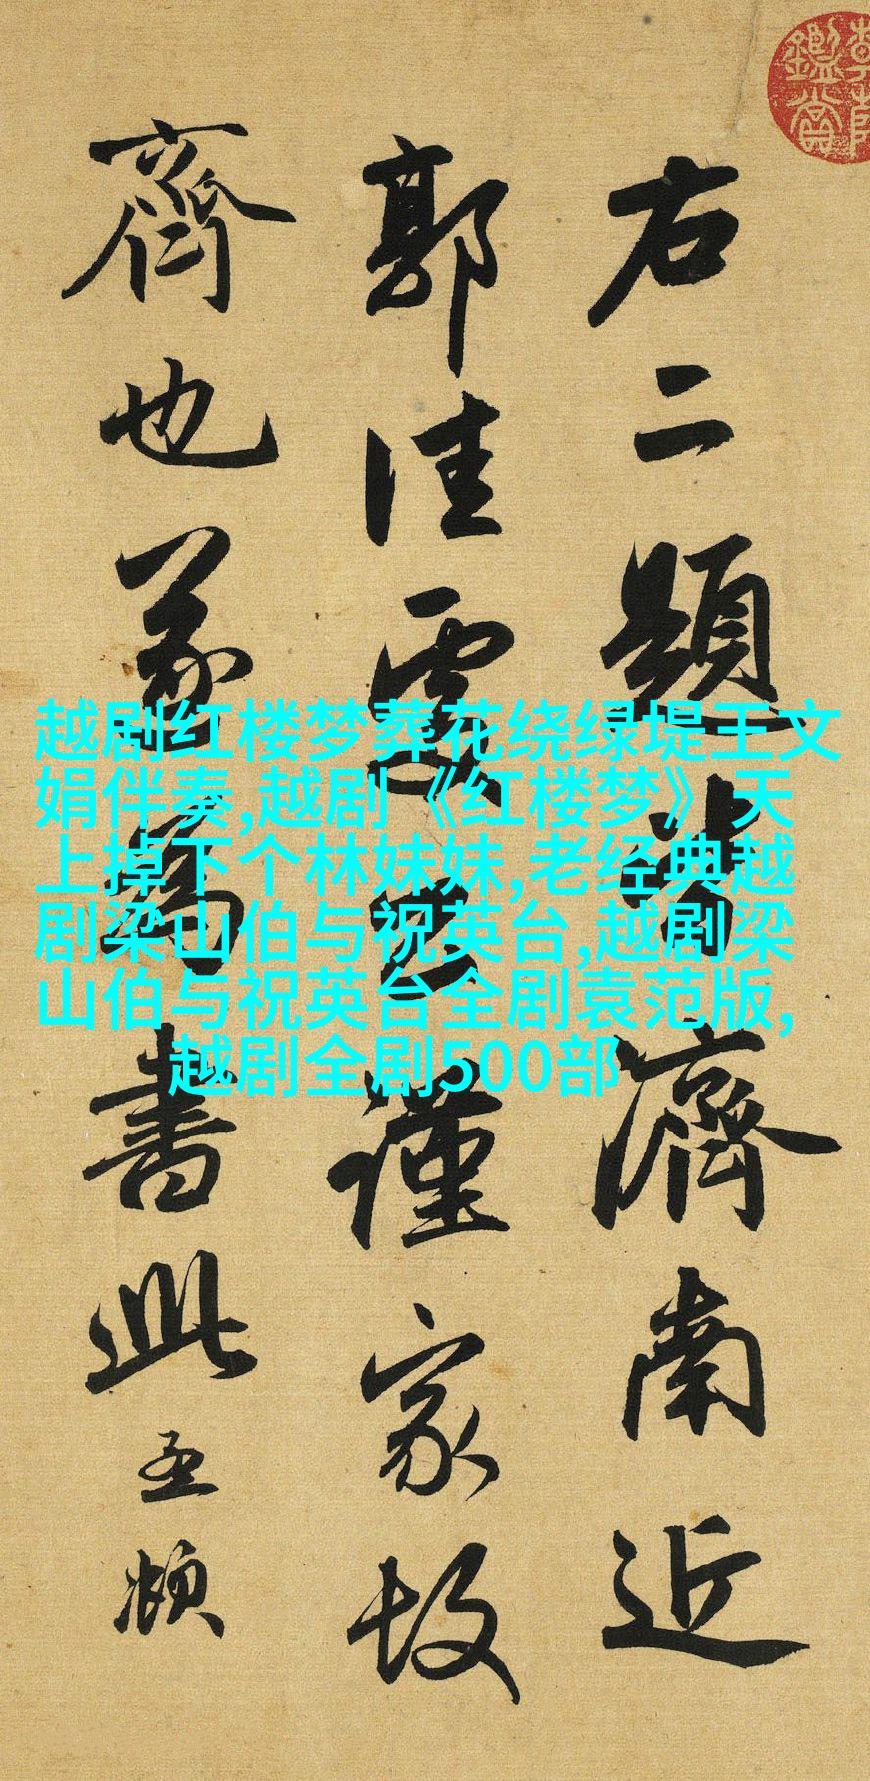 右二題皆濟南近
郭佳處公謹家故
齊也遂為書此孟頫
越剧红楼梦葬花绕绿堤王文
娟伴奏,越剧《红楼梦》天
上掉下个林妹妹,老经典越
剧梁山伯与祝英台,越剧梁
山伯与祝英台全剧袁范版,
越剧全剧500部